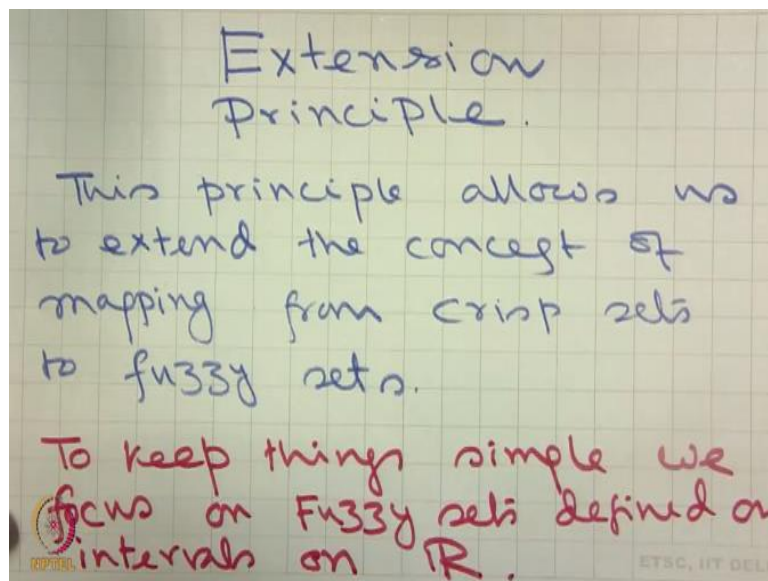 Extension
Principle.
This principle allows us
to extend the concept of
mapping from crisp sets
to fuzzy sets.
To keep things simple we
focus on Fuzzy sets defined on
intervals on ℝ.
NPTEL
ETSC, IIT DEL